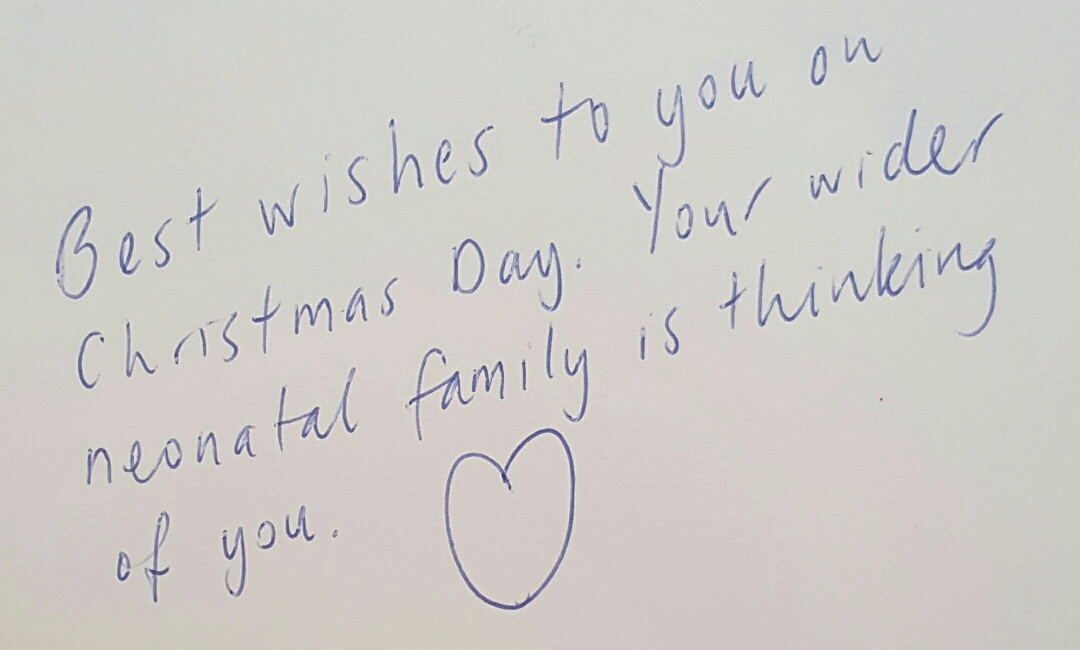 Best wishes to you on
Christmas Day. Your wider
neonatal family is thinking
of you.